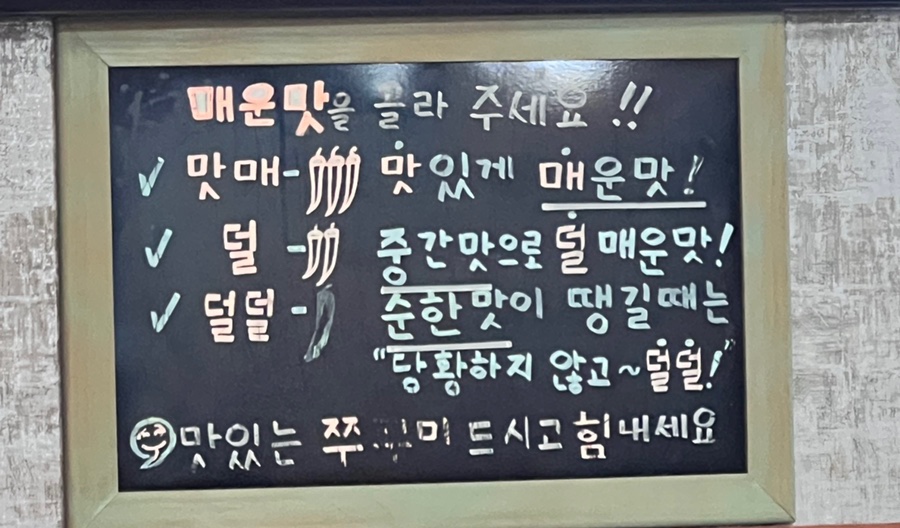 매운맛을 골라 주세요 !!
✓ 맛매- 맛있게 매운맛!
✓ 덜 - 중간맛으로 덜 매운맛!
✓ 덜덜 - 순한맛이 땡길때는
"당황하지 않고~덜덜!"
맛있는 쭈꾸미 드시고 힘내세요